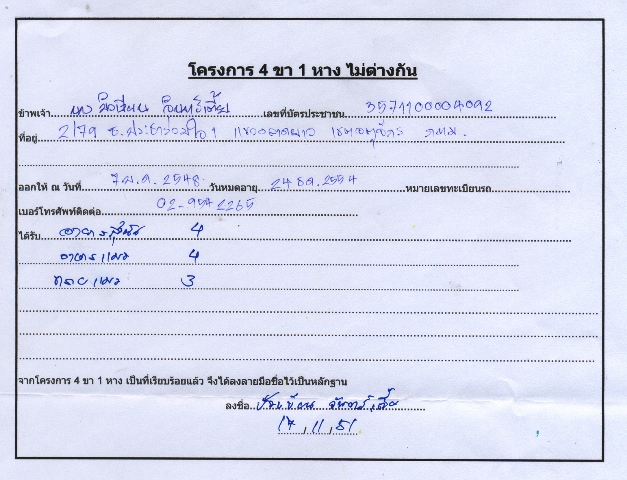 โครงการ 4 ขา 1 หาง ไม่ต่างกัน
ข้าพเจ้า นาง จันทร์เตี้ย เลขที่บัตรประชาชน 3571100004092
ที่อยู่ 2/79 ซ.ประชาร่วมใจ 1 แขวงลาดยาว เขตจตุจักร กทม.
ออกให้ ณ วันที่ 7 ม.ค. 2548 วันหมดอายุ 24 ธค. 2554 หมายเลขทะเบียนรถ
เบอร์โทรศัพท์ติดต่อ 02-9542265
ได้รับ อาหารสุนัข 4
อาหารแมว 4
ทรายแมว 3
จากโครงการ 4 ขา 1 หาง เป็นที่เรียบร้อยแล้ว จึงได้ลงลายมือชื่อไว้เป็นหลักฐาน
ลงชื่อ จันทร์เตี้ย
17 / 11 / 51